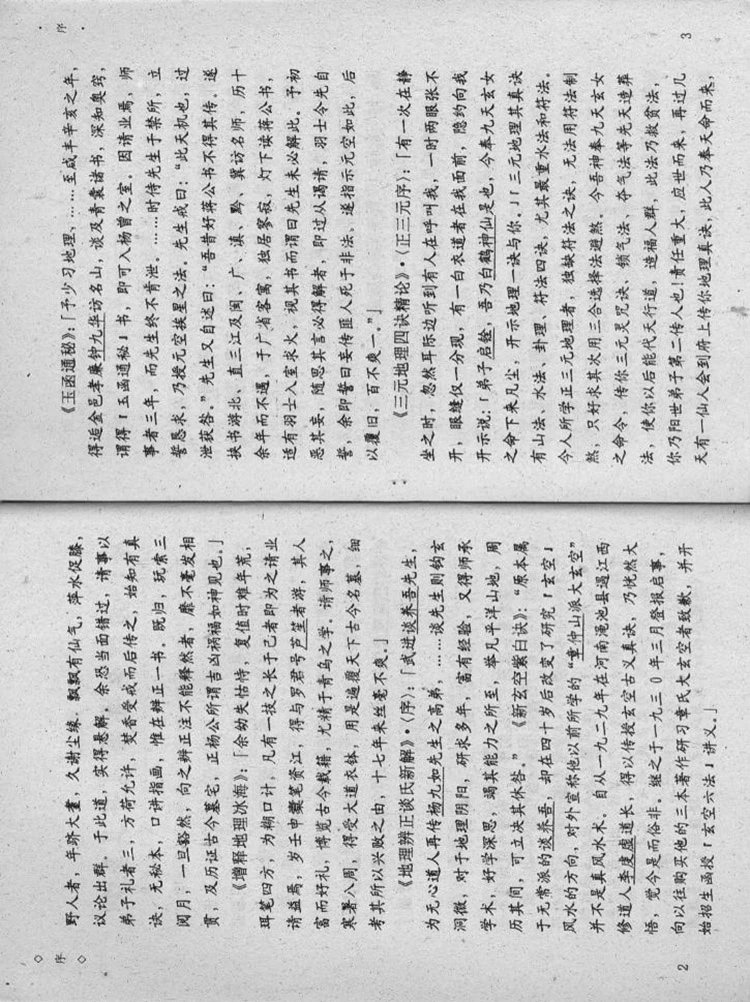 ◇ 序 ◇
野人者，年跻大耋，久谢尘缘，飘飘有仙气，萍水促膝，
议论出群。于此道，实得悬解。余恐当面错过，请事以
弟子礼者三，方荷允许，焚香受戒而后传之，始知有真
诀，无秘本，口讲指画，惟在辨正一书。既归，玩索三
阅月，一旦豁然，向之辨正注不能释然者，靡不毫发相
贯，及历证古今墓宅，正杨公所谓吉凶祸福如神见也。」
《增释地理冰海》：「余幼失怙恃，复值时难年荒，
珥笔四方，为糊口计，凡有一技之长于己者即为之请业
请益焉，岁壬申橐笔资江，得与罗君号芦笙者游，其人
富而好礼，博览古今载籍，尤精于青乌之学。请师事之，
寒暑八周，得受大道衣钵，用是遍覆天下古今名墓，细
考其所以兴败之由，十七年来丝毫不爽。」
《地理辨正谈氏新解》·〈序〉：「武进谈养吾先生，
为无心道人再传杨九如先生之高弟，……谈先生则钩玄
洞微，对于地理阴阳，研求多年，富有经验，又得师承
学术，好学深思，竭其能力之所至，举凡平洋山地，周
历其间，可立决其休咎。」《新玄空紫白诀》：“原本属
于无常派的谈养吾，却在四十岁后改变了研究『玄空』
风水的方向，对外宣称他以前所学的“章仲山派大玄空”
并不是真风水术。自从一九二九年在河南渑池县遇江西
修道人李虔虚道长，得以传授玄空古义真诀，乃恍然大
悟，觉今是而俗非。继之于一九三0年三月登报启事，
向以往购买他的三本著作研习章氏大玄空者致歉，并开
始招生函授『玄空六法』讲义。」
2
· 序 ·
《玉函通秘》：「予少习地理、……至咸丰辛亥之年，
得逅金邑孝廉钟九华访名山，谈及青囊诸书，深知奥窍，
谓得『玉函通秘』书，即可入杨曾之室。因请业焉，师
事者三年，而先生终不肯泄。……时侍先生于禁所，立
誓恳求，乃授元空挨星之法。先生戒曰：“此天机也，过
泄获咎。”先生又自述曰：“吾昔好蒋公书不得其传。遂
挟书游北、直三江及闽、广、滇、黔、冀访名师，历十
余年而不遇，于广省客寓，独居寥寂，灯下读蒋公书，
适有羽士入室求火，视其书而谓曰先生未必解此。予初
恶其妄，随思其言必得解者，即过从谒请，羽士令先自
誓，余即誓曰妄传匪人死于非法、遂指示元空如此，后
以覆旧，百不爽一。”」
《三元地理四诀精论》·〈正三元序〉：「有一次在静
坐之时，忽然耳际边听到有人在呼叫我，一时两眼张不
开，眼缝仅一分现，有一白衣道者在我面前，隐约向我
开示说：「弟子启铨，吾乃白鹤神仙是也，今奉九天玄女
之命下来凡尘，开示地理一诀与你。」「三元地理其真诀
有山法、水法、卦理、符法四诀，尤其最重水法和符法。
今人所学正三元地理者，独缺符法之诀，无法用符法制
煞，只好求其次用三合选择法避煞。今吾神奉九天玄女
之命令，传你三元灵咒诀、锁气法、夺气法等先天造葬
法，使你以后能代天行道，造福人群，此法乃救贫法，
你乃阳世弟子第二传人也！责任重大，应世而来，再过几
天有一仙人会到府上传你地理真诀，此人乃奉天命而来，
3